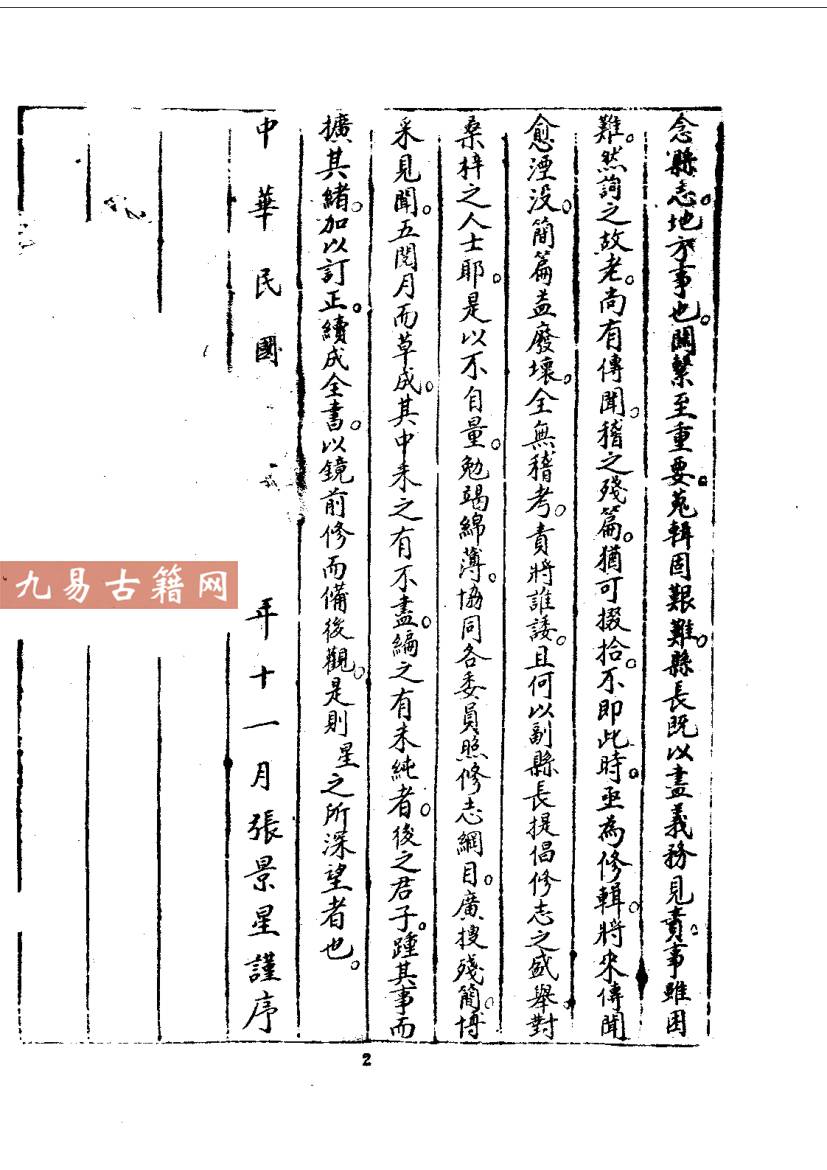 念縣志。地方事也。關繫至重要。蒐輯固艱難。縣長既以盡義務見責。事雖困
難。然詢之故老。尚有傳聞。稽之殘篇。猶可掇拾。不即此時。亟為修輯。將來傳聞
愈湮沒。簡篇益廢壞。全無稽考。責將誰諉。且何以副縣長提倡修志之盛舉。對
桑梓之人士耶。是以不自量。勉竭綿薄。協同各委員照修志綱目。廣搜殘簡。博
采見聞。五閱月而草成。其中采之有不盡。編之有未純者。後之君子。踵其事而
擴其緒。加以訂正。續成全書。以鏡前修而備後觀。是則星之所深望者也。
中華民國 年十一月張景星謹序
九易古籍网
2